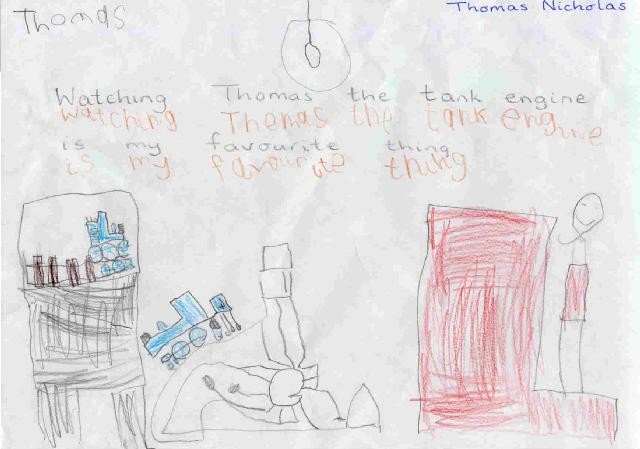 Thomas
Thomas Nicholas
Watching Thomas the tank engine
watching Thomas the tank engine
is my favourite thing
is my favourite thing